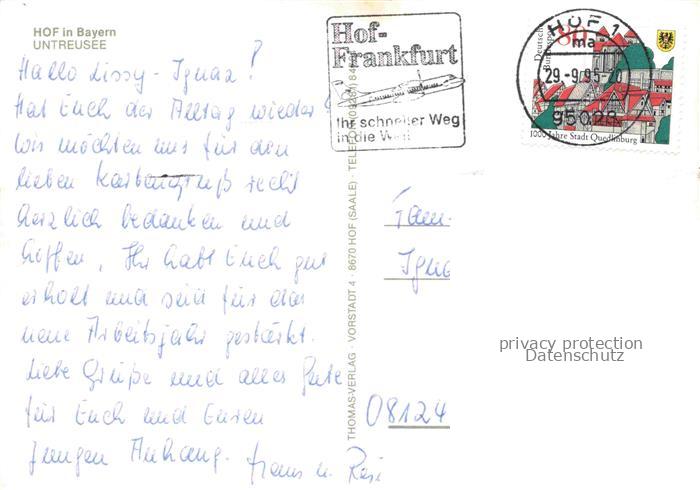 HOF in Bayern
UNTREUSEE
Hallo Lissy - Ignaz!
Hat Euch der Alltag wieder?
Wir möchten uns für den
lieben Kartengruß recht
herzlich bedanken und
hoffen, Ihr habt Euch gut
erholt und seid für das
neue Arbeitsjahr gestärkt.
Liebe Grüße und alles Gute
für Euch und Euren
jungen Anhang. Franz u. Rosi
THOMAS-VERLAG · VORSTADT 4 · 8670 HOF (SAALE) · TELEFON
Hof-
Frankfurt
Ihr schneller Weg
in die Welt
HOF 1
ma
29.-9.95-
95028
80
Deutsche
Bundespost
1000 Jahre Stadt Quedlinburg
Fam.
Igna
08124
privacy protection
Datenschutz